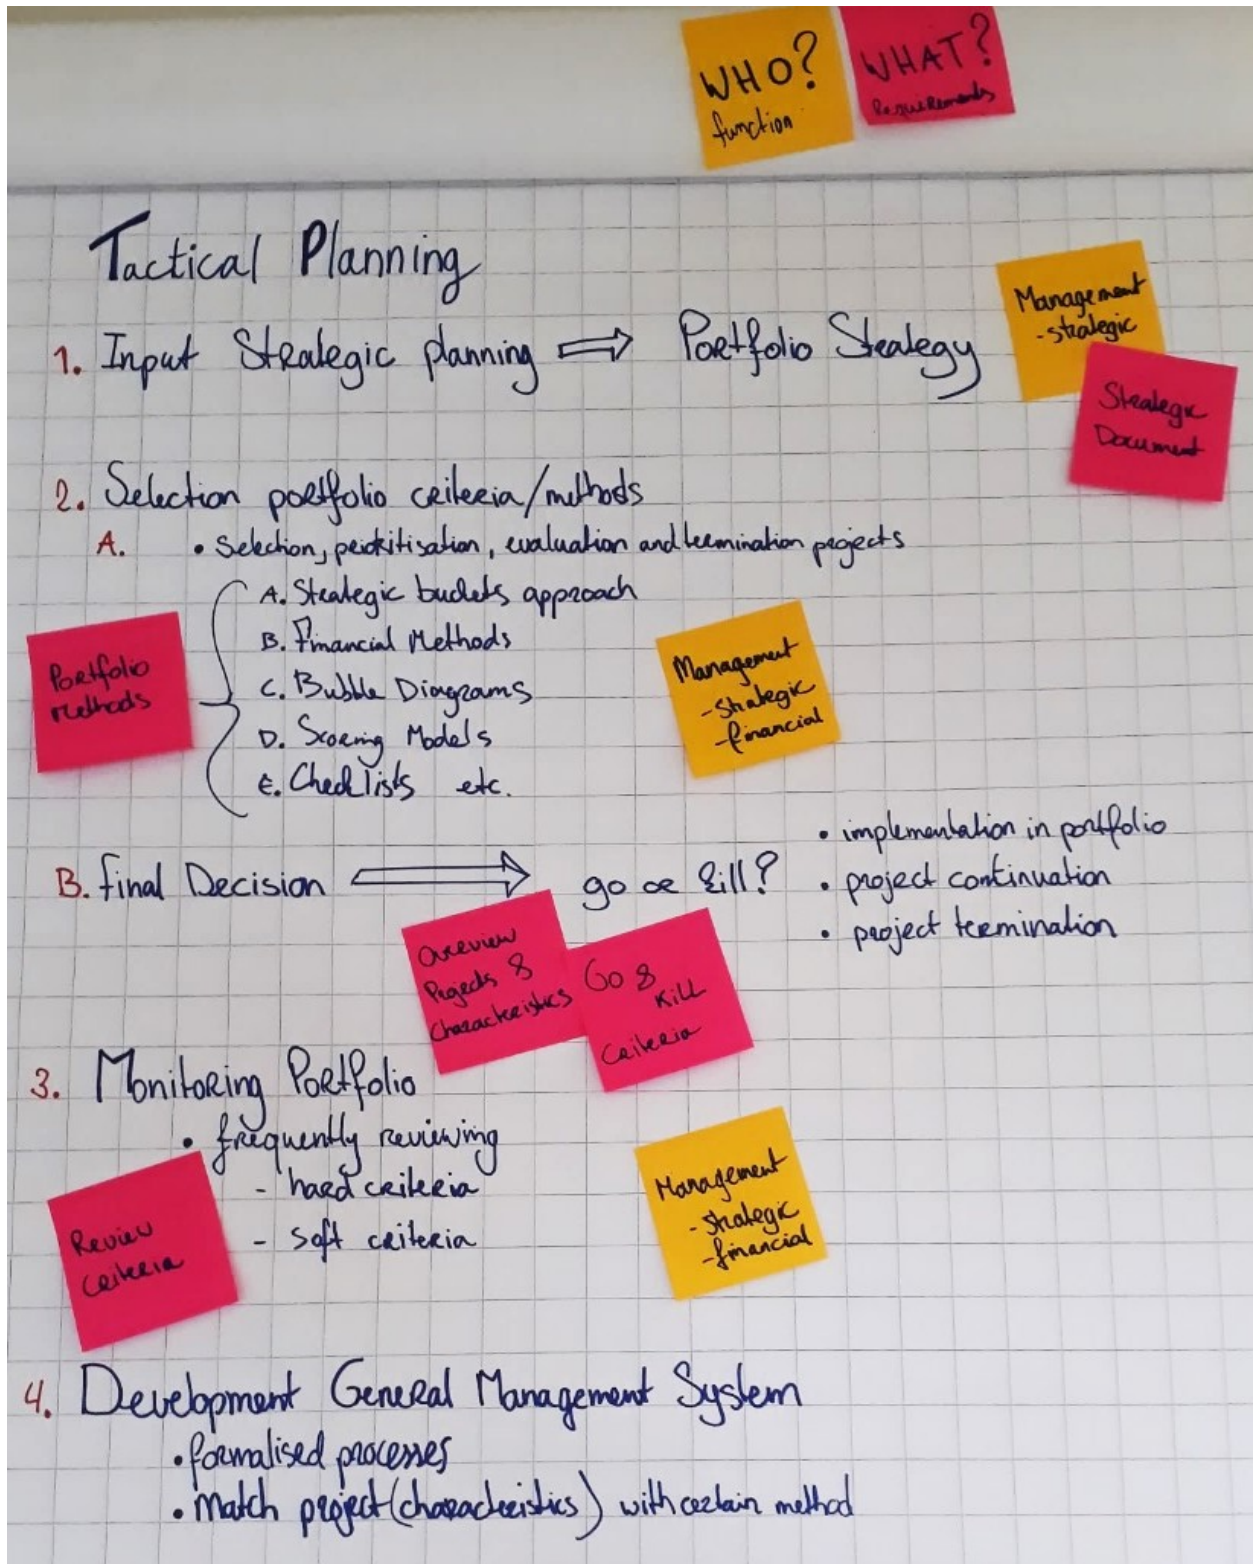 WHO?
function
WHAT?
Requirements
Tactical Planning
1. Input Strategic planning ⇒ Portfolio Strategy
Management
- strategic
Strategic
Document
2. Selection portfolio criteria/methods
A. • Selection, prioritisation, evaluation and termination projects
A. Strategic buckets approach
B. Financial Methods
C. Bubble Diagrams
D. Scoring Models
E. Checklists etc.
Portfolio
methods
Management
- strategic
- financial
B. Final Decision ⇒ go or kill?
• implementation in portfolio
• project continuation
• project termination
Overview
Projects &
Characteristics
Go &
Kill
Criteria
3. Monitoring Portfolio
• frequently reviewing
- hard criteria
- soft criteria
Review
Criteria
Management
- strategic
- financial
4. Development General Management System
• formalised processes
• Match project (characteristics) with certain method